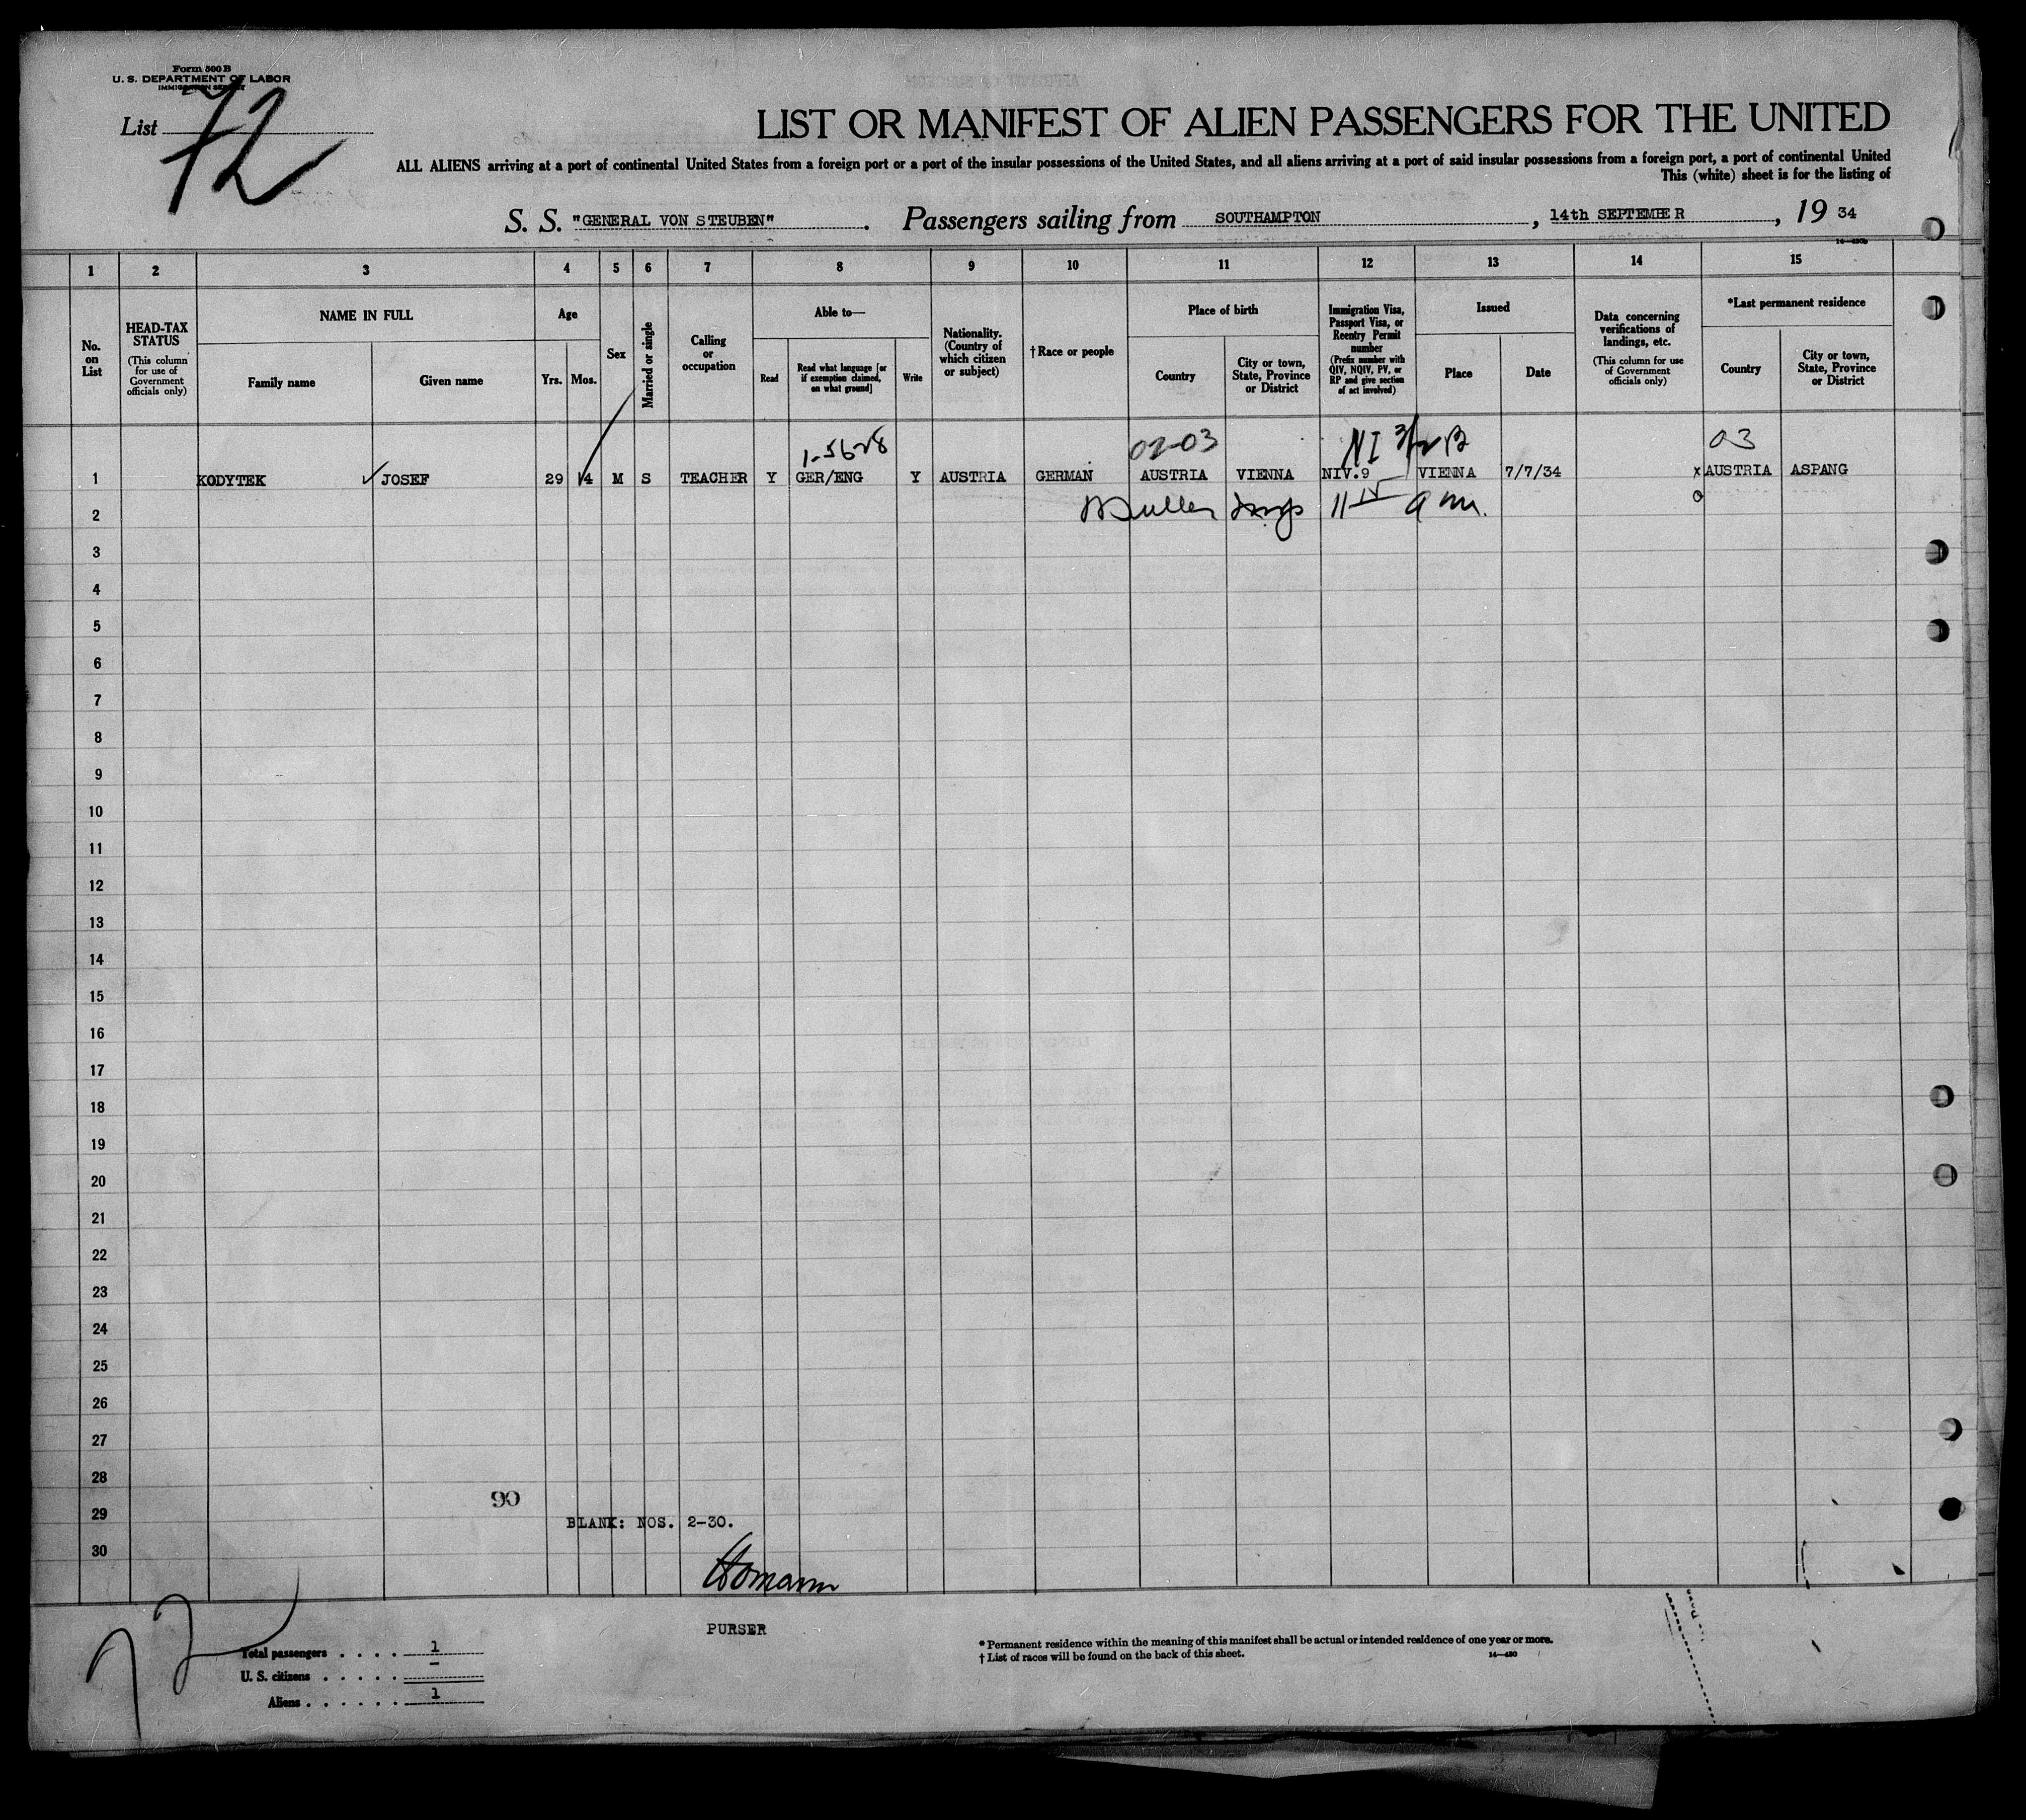 Form 500 B
U. S. DEPARTMENT OF LABOR
IMMIGRATION SERVICE
List 72
LIST OR MANIFEST OF ALIEN PASSENGERS FOR THE UNITED
ALL ALIENS arriving at a port of continental United States from a foreign port or a port of the insular possessions of the United States, and all aliens arriving at a port of said insular possessions from a foreign port, a port of continental United
This (white) sheet is for the listing of
S. S. "GENERAL VON STEUBEN". Passengers sailing from SOUTHAMPTON, 14th SEPTEMBER, 19 34
1 2 3 4 5 6 7 8 9 10 11 12 13 14 15
No. on List
HEAD-TAX STATUS
(This column for use of Government officials only)
NAME IN FULL
Family name Given name
Age
Yrs. Mos.
Sex
Married or single
Calling or occupation
Able to—
Read
Read what language [or if exemption claimed, on what ground]
Write
Nationality. (Country of which citizen or subject)
†Race or people
Place of birth
Country
City or town, State, Province or District
Immigration Visa, Passport Visa, or Reentry Permit number
(Prefix number with QIV, NQIV, PV, or RP and give section of act involved)
Issued
Place Date
Data concerning verifications of landings, etc.
(This column for use of Government officials only)
*Last permanent residence
Country
City or town, State, Province or District
1-5628 03
1 KODYTEK ✓ JOSEF 29 4 M S TEACHER Y GER/ENG Y AUSTRIA GERMAN AUSTRIA VIENNA NIV.9 VIENNA 7/7/34 x AUSTRIA ASPANG
2
3
4
5
6
7
8
9
10
11
12
13
14
15
16
17
18
19
20
21
22
23
24
25
26
27
28
90
29
BLANK: NOS. 2-30.
30
PURSER
72
Total passengers . . . . 1
U. S. citizens . . . . . –
Aliens . . . . . . 1
* Permanent residence within the meaning of this manifest shall be actual or intended residence of one year or more.
† List of races will be found on the back of this sheet.
14—430